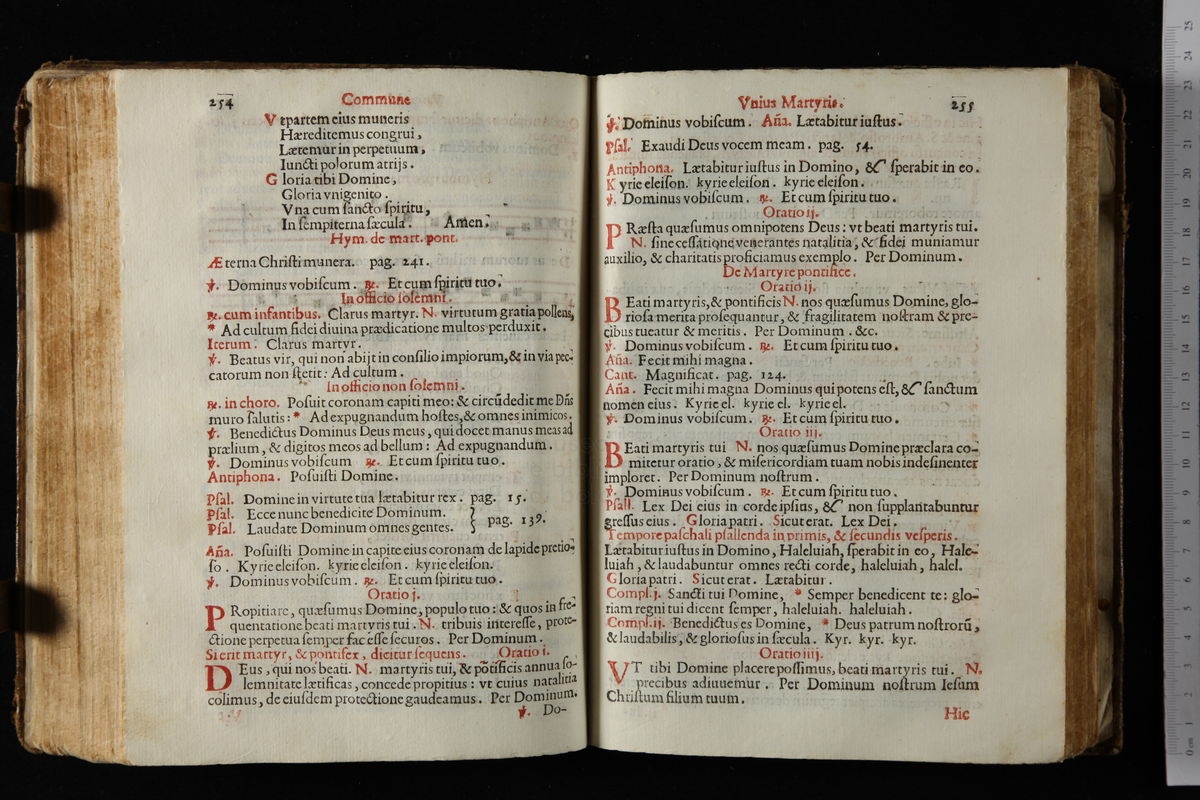 254
Commune
Vt partem eius muneris
Hæreditemus congrui,
Lætemur in perpetuum,
Iuncti polorum atrijs.
Gloria tibi Domine,
Gloria vnigenito.
Vna cum sancto spiritu,
In sempiterna sæcula. Amen.
Hym. de mart. pont.
Æterna Christi munera. pag. 241.
℣. Dominus vobiscum. ℟. Et cum spiritu tuo.
In officio solemni.
℟. cum infantibus. Clarus martyr. N. virtutum gratia pollens,
* Ad cultum fidei diuina prædicatione multos perduxit.
Iterum. Clarus martyr.
℣. Beatus vir, qui non abijt in consilio impiorum, & in via pec-
catorum non stetit: Ad cultum.
In officio non solemni.
℟. in choro. Posuit coronam capiti meo: & circūdedit me Dn̄s
muro salutis: * Ad expugnandum hostes, & omnes inimicos.
℣. Benedictus Dominus Deus meus, qui docet manus meas ad
prælium, & digitos meos ad bellum: Ad expugnandum.
℣. Dominus vobiscum ℟. Et cum spiritu tuo.
Antiphona. Posuisti Domine.
Psal. Domine in virtute tua lætabitur rex. pag. 15.
Psal. Ecce nunc benedicite Dominum.
Psal. Laudate Dominum omnes gentes. } pag. 139.
Aña. Posuisti Domine in capite eius coronam de lapide pretio-
so. Kyrie eleison. kyrie eleison. kyrie eleison.
℣. Dominus vobiscum. ℟. Et cum spiritu tuo.
Oratio j.
PRopitiare, quæsumus Domine, populo tuo: & quos in fre-
quentatione beati martyris tui. N. tribuis interesse, prote-
ctione perpetua semper fac esse securos. Per Dominum.
Si erit martyr, & pontifex, dicitur sequens. Oratio i.
DEus, qui nos beati. N. martyris tui, & pōtificis annua so-
lemnitate lætificas, concede propitius: vt cuius natalitia
colimus, de eiusdem protectione gaudeamus. Per Dominum.
℣. Do-
Vnius Martyris.
255
℣. Dominus vobiscum. Aña. Lætabitur iustus.
Psal. Exaudi Deus vocem meam. pag. 54.
Antiphona. Lætabitur iustus in Domino, & sperabit in eo.
Kyrie eleison. kyrie eleison. kyrie eleison.
℣. Dominus vobiscum. ℟. Et cum spiritu tuo.
Oratio ij.
PRæsta quæsumus omnipotens Deus: vt beati martyris tui.
N. sine cessatione venerantes natalitia, & fidei muniamur
auxilio, & charitatis proficiamus exemplo. Per Dominum.
De Martyre pontifice.
Oratio ij.
BEati martyris, & pontificis N. nos quæsumus Domine, glo-
riosa merita prosequantur, & fragilitatem nostram & pre-
cibus tueatur & meritis. Per Dominum. &c.
℣. Dominus vobiscum. ℟. Et cum spiritu tuo.
Aña. Fecit mihi magna.
Cant. Magnificat. pag. 124.
Aña. Fecit mihi magna Dominus qui potens est, & sanctum
nomen eius. Kyrie el. kyrie el. kyrie el.
℣. Dominus vobiscum. ℟. Et cum spiritu tuo.
Oratio iij.
BEati martyris tui N. nos quæsumus Domine præclara co-
mitetur oratio, & misericordiam tuam nobis indesinenter
imploret. Per Dominum nostrum.
℣. Dominus vobiscum. ℟. Et cum spiritu tuo.
Psall. Lex Dei eius in corde ipsius, & non supplantabuntur
gressus eius. Gloria patri. Sicut erat. Lex Dei.
Tempore paschali psallenda in primis, & secundis vesperis.
Lætabitur iustus in Domino, Haleluiah, sperabit in eo, Hale-
luiah, & laudabuntur omnes recti corde, haleluiah, halel.
Gloria patri. Sicut erat. Lætabitur.
Compl. j. Sancti tui Domine, * Semper benedicent te: glo-
riam regni tui dicent semper, haleluiah. haleluiah.
Compl. ij. Benedictus es Domine, * Deus patrum nostrorū,
& laudabilis, & gloriosus in sæcula. Kyr. kyr. kyr.
Oratio iiij.
VT tibi Domine placere possimus, beati martyris tui. N.
precibus adiuuemur. Per Dominum nostrum Iesum
Christum filium tuum.
Hic